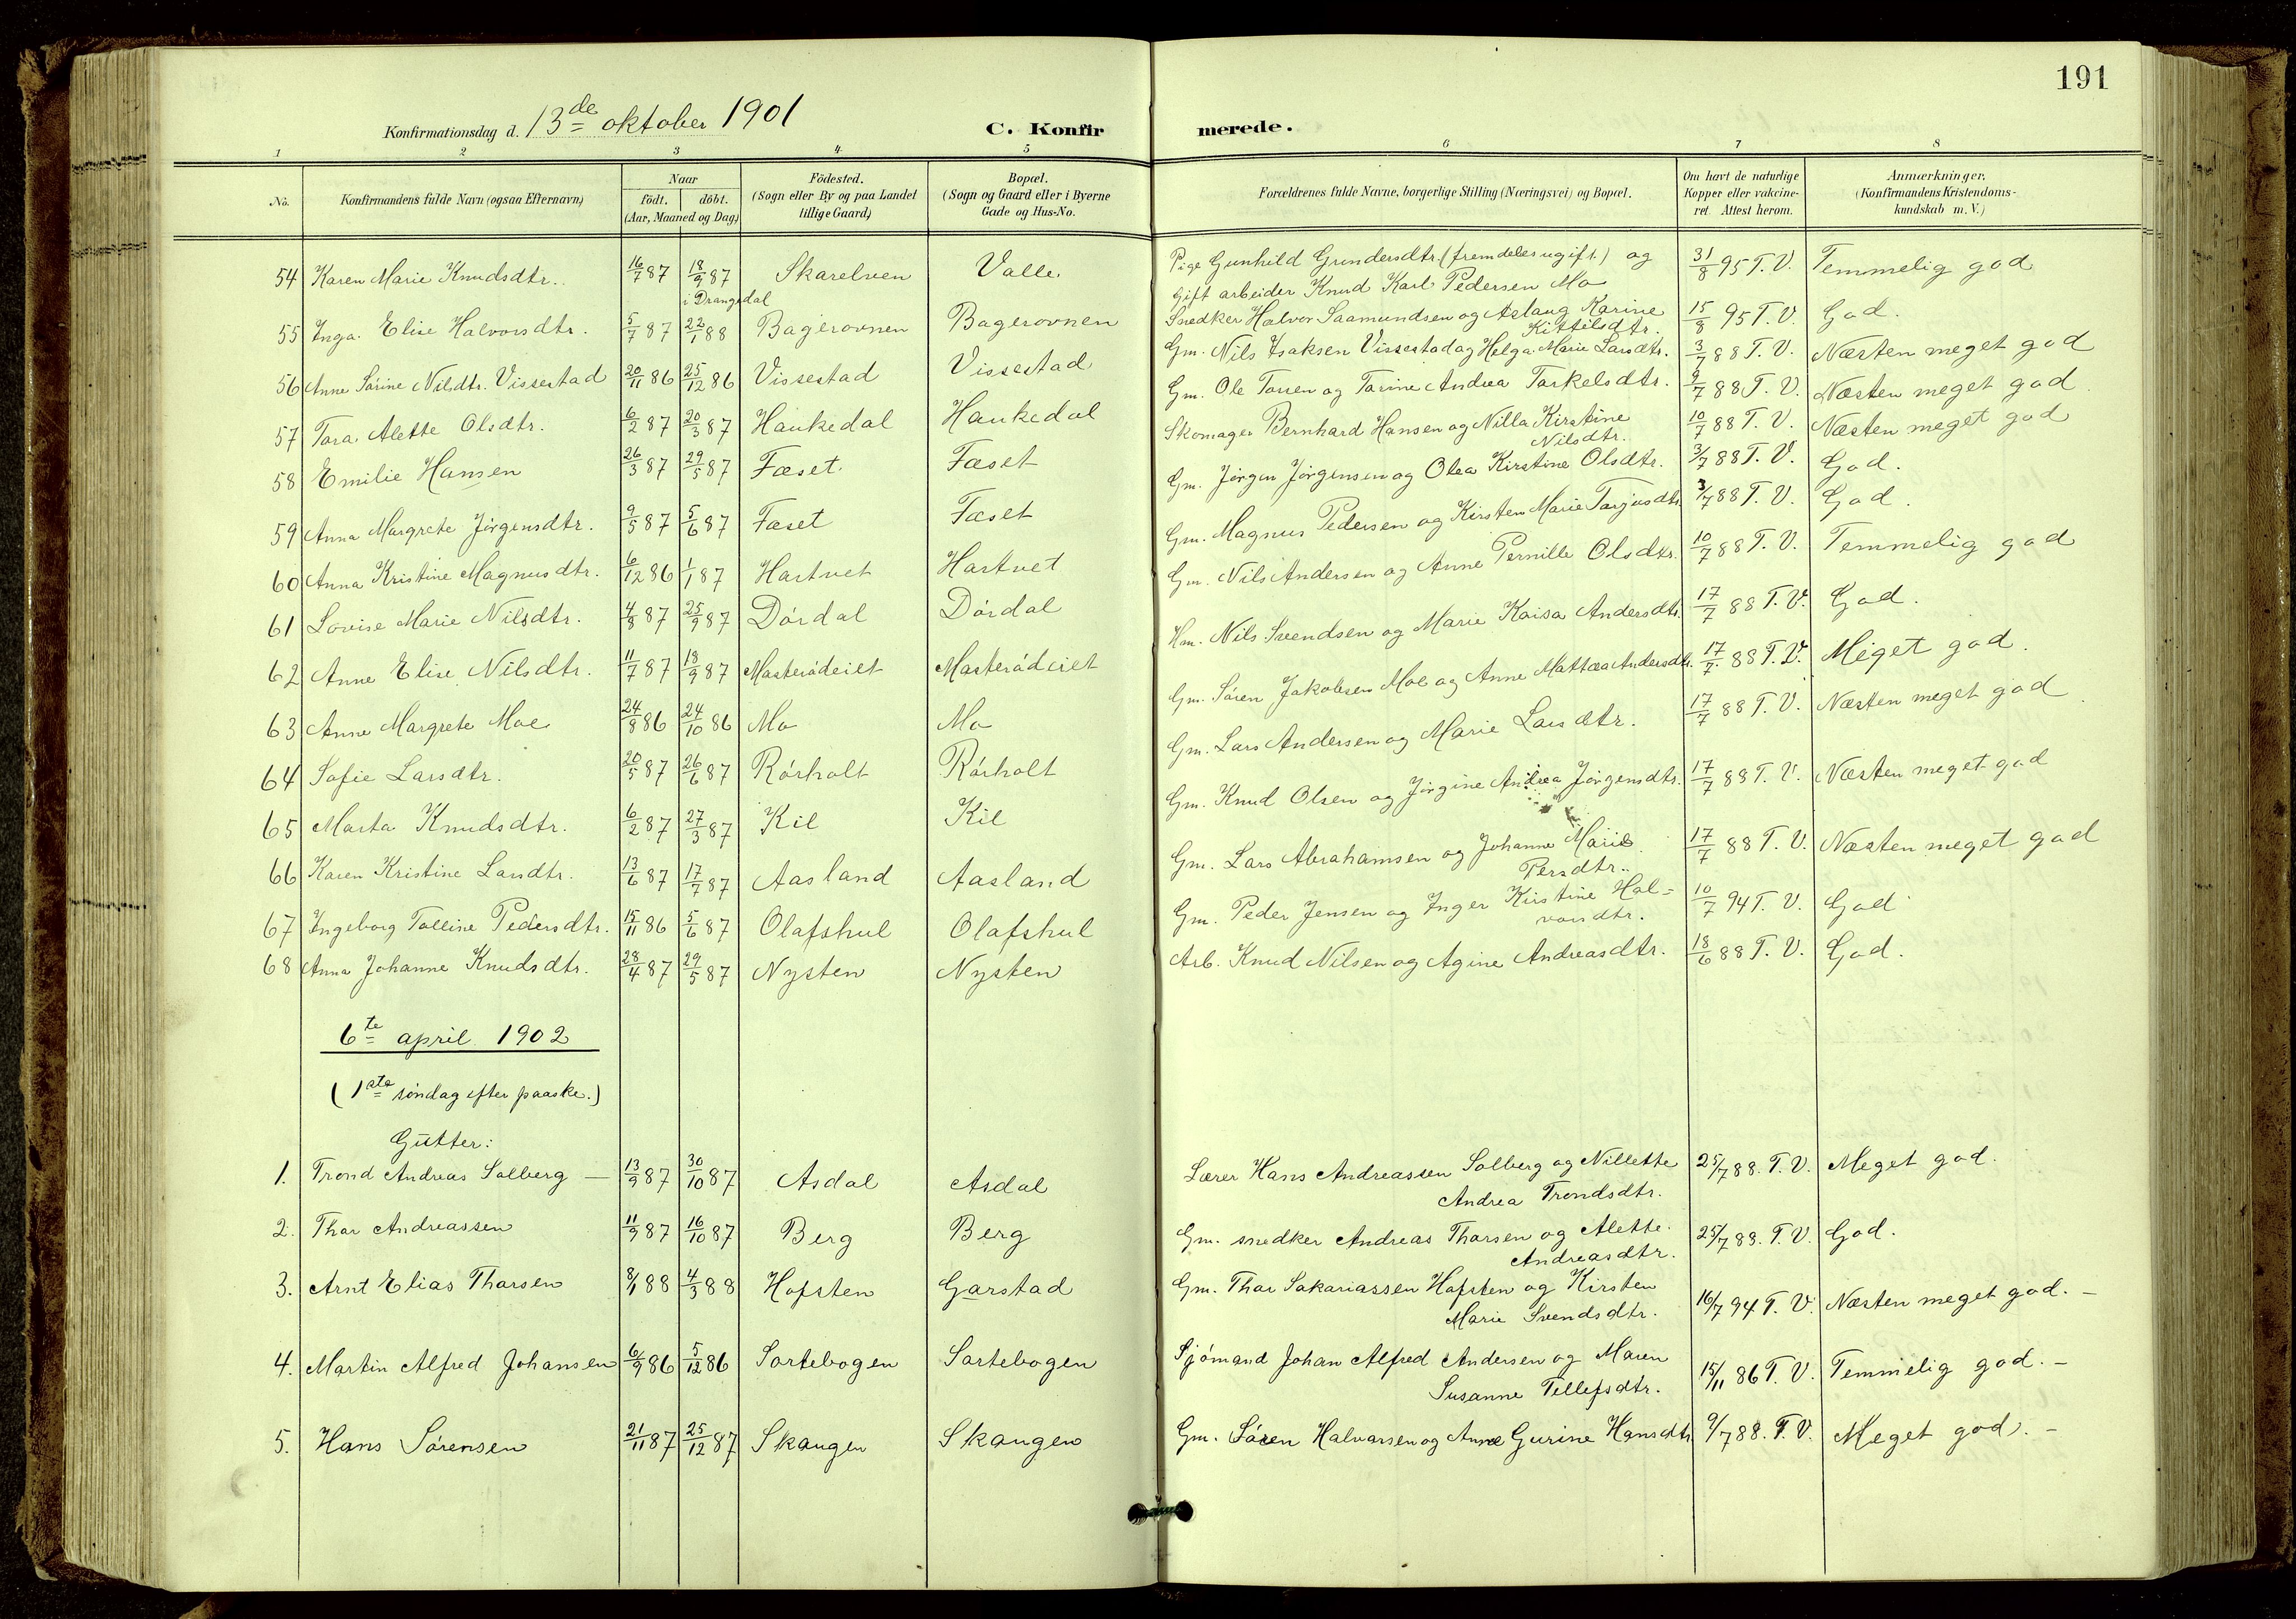 191
Konfirmationsdag d. 13de oktober 1901 C. Konfirmerede.
1 2 3 4 5 6 7 8
No. Konfirmandens fulde Navn (ogsaa Efternavn) Naar født. døbt. (Aar, Maaned og Dag) Fødested. (Sogn eller By og paa Landet tillige Gaard) Bopæl. (Sogn og Gaard eller i Byerne Gade og Hus-No. Forældrenes fulde Navne, borgerlige Stilling (Næringsvei) og Bopæl. Om havt de naturlige Kopper eller vakcineret. Attest herom. Anmærkninger. (Konfirmandens Kristendomskundskab m. V.)
54 Karen Marie Knudsdtr. 16/7 87 18/9 87 i Drangedal Skarelven Valle Pige Gunhild Gundersdtr. (fremdeles ugift.) og
Gift arbeider Knud Karl Pedersen Mo 31/8 95 T. V. Temmelig god
55 Inga Elise Halvorsdtr. 5/7 87 22/1 88 Bagerovnen Bagerovnen Snedker Halvor Saamundsen og Aslaug Karine
Kittilsdtr. 15/8 95 T. V. God.
56 Anne Sørine Nilsdtr. Vissestad 20/11 86 25/12 86 Vissestad Vissestad Gm. Nils Isaksen Vissestad og Helga Marie Larsdtr. 3/7 88 T. V. Næsten meget god
57 Tora Alette Olsdtr. 6/2 87 20/3 87 Haukedal Haukedal Gm. Ole Torsen og Torine Andrea Torkelsdtr. 9/7 88 T. V. Næsten meget god
58 Emilie Hansen 26/3 87 29/5 87 Fæset Fæset Skomager Bernhard Hansen og Nilla Kirstine
Nilsdtr. 10/7 88 T. V. Næsten meget god
59 Anna Margrete Jørgensdtr. 9/5 87 5/6 87 Fæset Fæset Gm. Jørgen Jørgensen og Olea Kirstine Olsdtr. 3/7 88 T. V. God.
60 Anna Kristine Magnusdtr. 6/12 86 1/1 87 Hartvet Hartvet Gm. Magnus Pedersen og Kirsten Marie Torjusdtr. 3/7 88 T. V. God.
61 Lovise Marie Nilsdtr. 4/8 87 25/9 87 Dórdal Dórdal Gm. Nils Andersen og Anne Pernille Olsdtr. 10/7 88 T. V. Temmelig god
62 Anne Elise Nilsdtr. 11/7 87 18/9 87 Masterødeiet Masterødeiet Hm. Nils Svendsen og Marie Kaisa Andersdtr. 17/7 88 T. V. God.
63 Anne Margrete Moe 24/8 86 24/10 86 Mo Mo Gm. Søren Jakobsen Moe og Anne Mattea Andersdtr. 17/7 88 T. V. Meget god.
64 Sofie Larsdtr. 20/5 87 26/6 87 Rórholt Rórholt Gm. Lars Andersen og Marie Larsdtr. 17/7 88 T. V. Næsten meget god
65 Marta Knudsdtr. 6/2 87 27/3 87 Kil Kil Gm. Knud Olsen og Jørgine Andrea Jørgensdtr. 17/7 88 T. V. Næsten meget god
66 Karen Kristine Larsdtr. 13/6 87 17/7 87 Aasland Aasland Gm. Lars Abrahamsen og Johanne Marie
Persdtr. 17/7 88 T. V. Næsten meget god
67 Ingeborg Tolline Pedersdtr. 15/11 86 5/6 87 Olafshul Olafshul Gm. Peder Jensen og Inger Kirstine Hal-
vorsdtr. 10/7 94 T. V. God
68 Anna Johanne Knudsdtr. 28/4 87 29/5 87 Nysten Nysten Arb. Knud Nilsen og Agine Andreasdtr. 18/6 88 T. V. God.
6te april 1902
(1ste søndag efter paaske.)
Gutter:
1. Trond Andreas Solberg — 13/9 87 30/10 87 Asdal Asdal Lærer Hans Andreassen Solberg og Nillette
Andrea Trondsdtr. 25/7 88. T. V. Meget god.
2. Thor Andreassen 11/9 87 16/10 87 Berg Berg Gm. snedker Andreas Thorsen og Alette
Andreasdtr. 25/7 88. T. V. God.
3. Arnt Elias Thorsen 8/1 88 4/3 88 Hofsten Garstad Gm. Thor Sakariassen Hofsten og Kirsten
Marie Svendsdtr. 16/7 94 T. V. Næsten meget god. —
4. Martin Alfred Johansen 6/9 86 5/12 86 Sortebogen Sortebogen Sjómand Johan Alfred Andersen og Maren
Susanne Tellefsdtr. 15/11 86 T. V. Temmelig god. —
5. Hans Sørensen 21/11 87 25/12 87 Skaugen Skaugen Gm. Søren Halvorsen og Anne Gurine Hansdtr. 9/7 88. T. V. Meget god. —